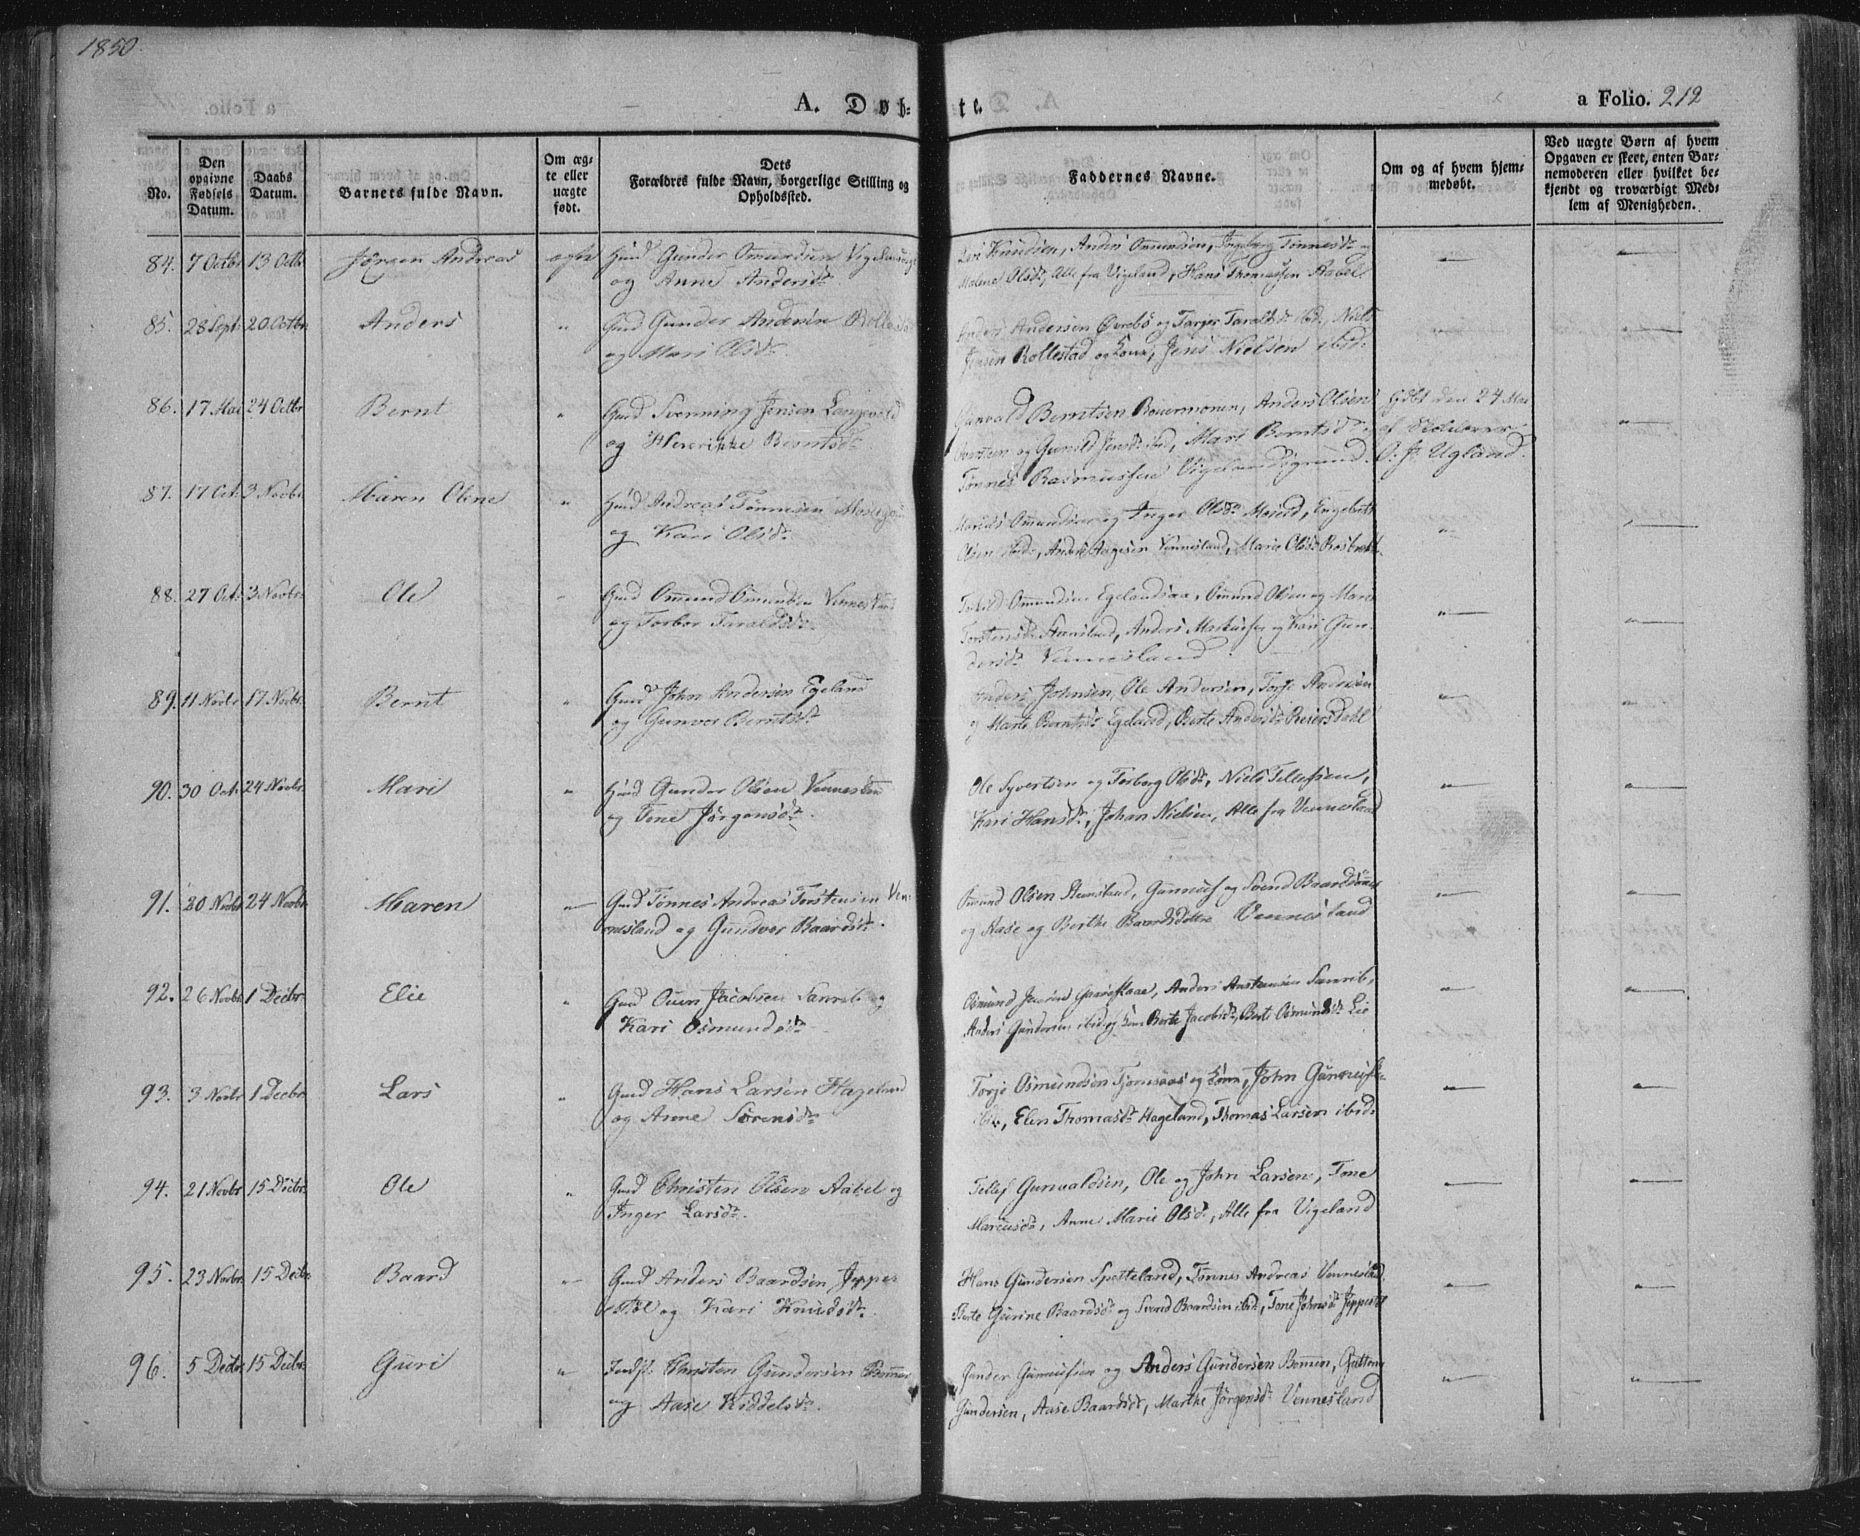 1850.
A. Døb=te.
a Folio. 212
No.
Den opgivne Fødsels Datum.
Daabs Datum.
Barnets fulde Navn.
Om ægte eller uægte født.
Dets Forældres fulde Navn, borgerlige Stilling og Opholdssted.
Faddernes Navne.
Om og af hvem hjemmedøbt.
Ved uægte Børn af hvem Opgaven er skeet, enten Barnemoderen eller hvilket bekjendt og troværdigt Medlem af Menigheden.
84. 7 Octbr 13 Octb. Jörgen Andreas ægte Gmd Gunder Omundsen
og Anne Andersdr
Knudsen, Anders Omundsen, Ingeborg Tönnesdr og
Malene Olsdr, Alle fra Vigeland, Hans Thomassen Aabel
85. 28 Sept. 20 Octbr Anders " Gmd Gunder Andersen
og Mari Olsdr.
Anders Andersen Övrebö og Taraldsdr ibd, Niels
Jensen Rollestad og Kone, Jens Nielsen ibd:
86. 17 Mai 24 Octbr Bernt " Gmd Svenning Jensen
og Berntsdr
Gunvald Berntsen Anders Olsen
og Gunild Jensdr ibd, Mari Berntsdr
Tönnes Rasmussen Vigelandsgrund.
Hjdbt den 24 Mai
af
O. J. Ugland.
87. 17 Oct. 3 Novbr Maren Oline " Gmd Andreas Tönnesen
og Kari Olsdr
Omundsen og Inger Olsdr Engebrett
Olsen ibd, Vennesland, Marie Olsdr
88. 27 Oct. 3 Novbr. Ole Gmd Omund Omundsen
og Torbor Taraldsdr.
Omundsen Egelandsaa, Omund Olsen og Maren
Torstensdr Stemsland, Anders og Kari Gun-
dersdr Vennesland.
89. 11 Novbr 17 Novbr. Bernt " Gmd John Andersen Egeland
og Gunvor Berntsdr
Anders Johnsen, Ole Andersen, Torje Andersen
og Marte Berntsdr Egeland, Berte Andersdr Reiersdahl
90. 30 Oct. 24 Novbr. Mari " Gmd Gunder Olsen
og Tone Jörgensdr.
Ole Syvertsen og Torborg Olsdr, Niels Tellefsen,
Kari Hansdr, Johan Nielsen, Alle fra Vennesland
91. 20 Novbr 24 Novbr Maren Gmd Tönnes Andreas Torstensen Ven-
nesland og Gundvor Baardsdr.
Omund Olsen Stemsland, Gunnuf og Svend
og Aase og Berthe Baardsdöttre Vennesland
92. 26 Novbr 1 Decbr. Elie " Gmd Ouen Jacobsen og
Kari Osmundsdr
Osmund Jensen Anders
Anders Gundersen ibid og Kone Berte Jacobsdr, Berte Osmundsdr Lie
93. 3 Novbr 1 Decbr Lars " Gmd Hans Larsen Hageland
og Anne Sörensdr
Torje Osmundsen Tjomsaas og Kone, John
ibd, Elen Thomasdr Hageland, Thomas Larsen ibid:
94. 21 Novbr 15 Decbr. Ole " Gmd Christen Olsen Aabel og
Inger Larsdr.
Tellef Gunvaldsen, Ole og John Larsen, Tone
Marcusdr, Anne Marie Olsdr, Alle fra Vigeland
95. 23 Novbr. 15 Decbr. Baard Gmd Anders Baardsen Jeppe-
stöl og Kari Knudsdr.
Hans Gundersen Spetteland, Tönnes Andreas Vennesland,
Berte Gurine Baardsdr og Svend Baardsen ibd, Tone Johnsdr Jeppestöl
96. 5 Decbr. 15 Decbr. Guri " Indst. Christen Gundersen
og Aase Kiddelsdr.
Gunder Gunnufsen og Anders Gundersen Bommen, Guttorm
Gundersen, Aase Baardsdr, Marthe Jörgensdr Vennesland